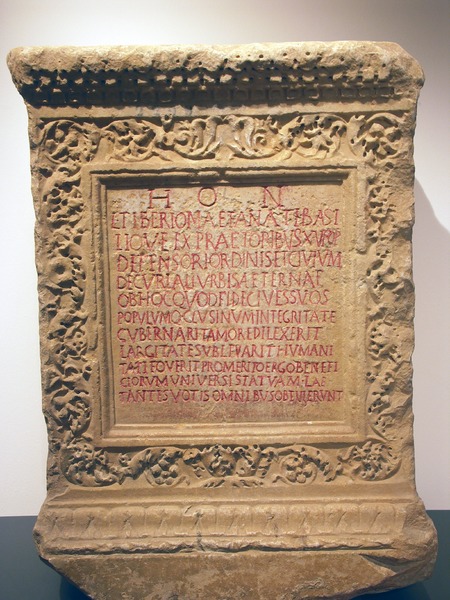 H O N
L TIBERIO MAEFANATI BASI
LIO V E EX PRAETORIBUS XV POP
DEFENSORI ORDINIS ET CIVIUM
DECURIALI URBIS AETERNAE
OB HOC QUOD FIDE CIVES SUOS
POPULUMQ CLUSINUM INTEGRITATE
GUBERNARIT AMORE DILEXERIT
LARGITATE SUBLEVARIT HUMANI
TATE FOVERIT PRO MERITO ERGO BENEFI
CIORUM UNIVERSI STATUAM LAE
TANTES VOTIS OMNIBUS OBTULERUNT